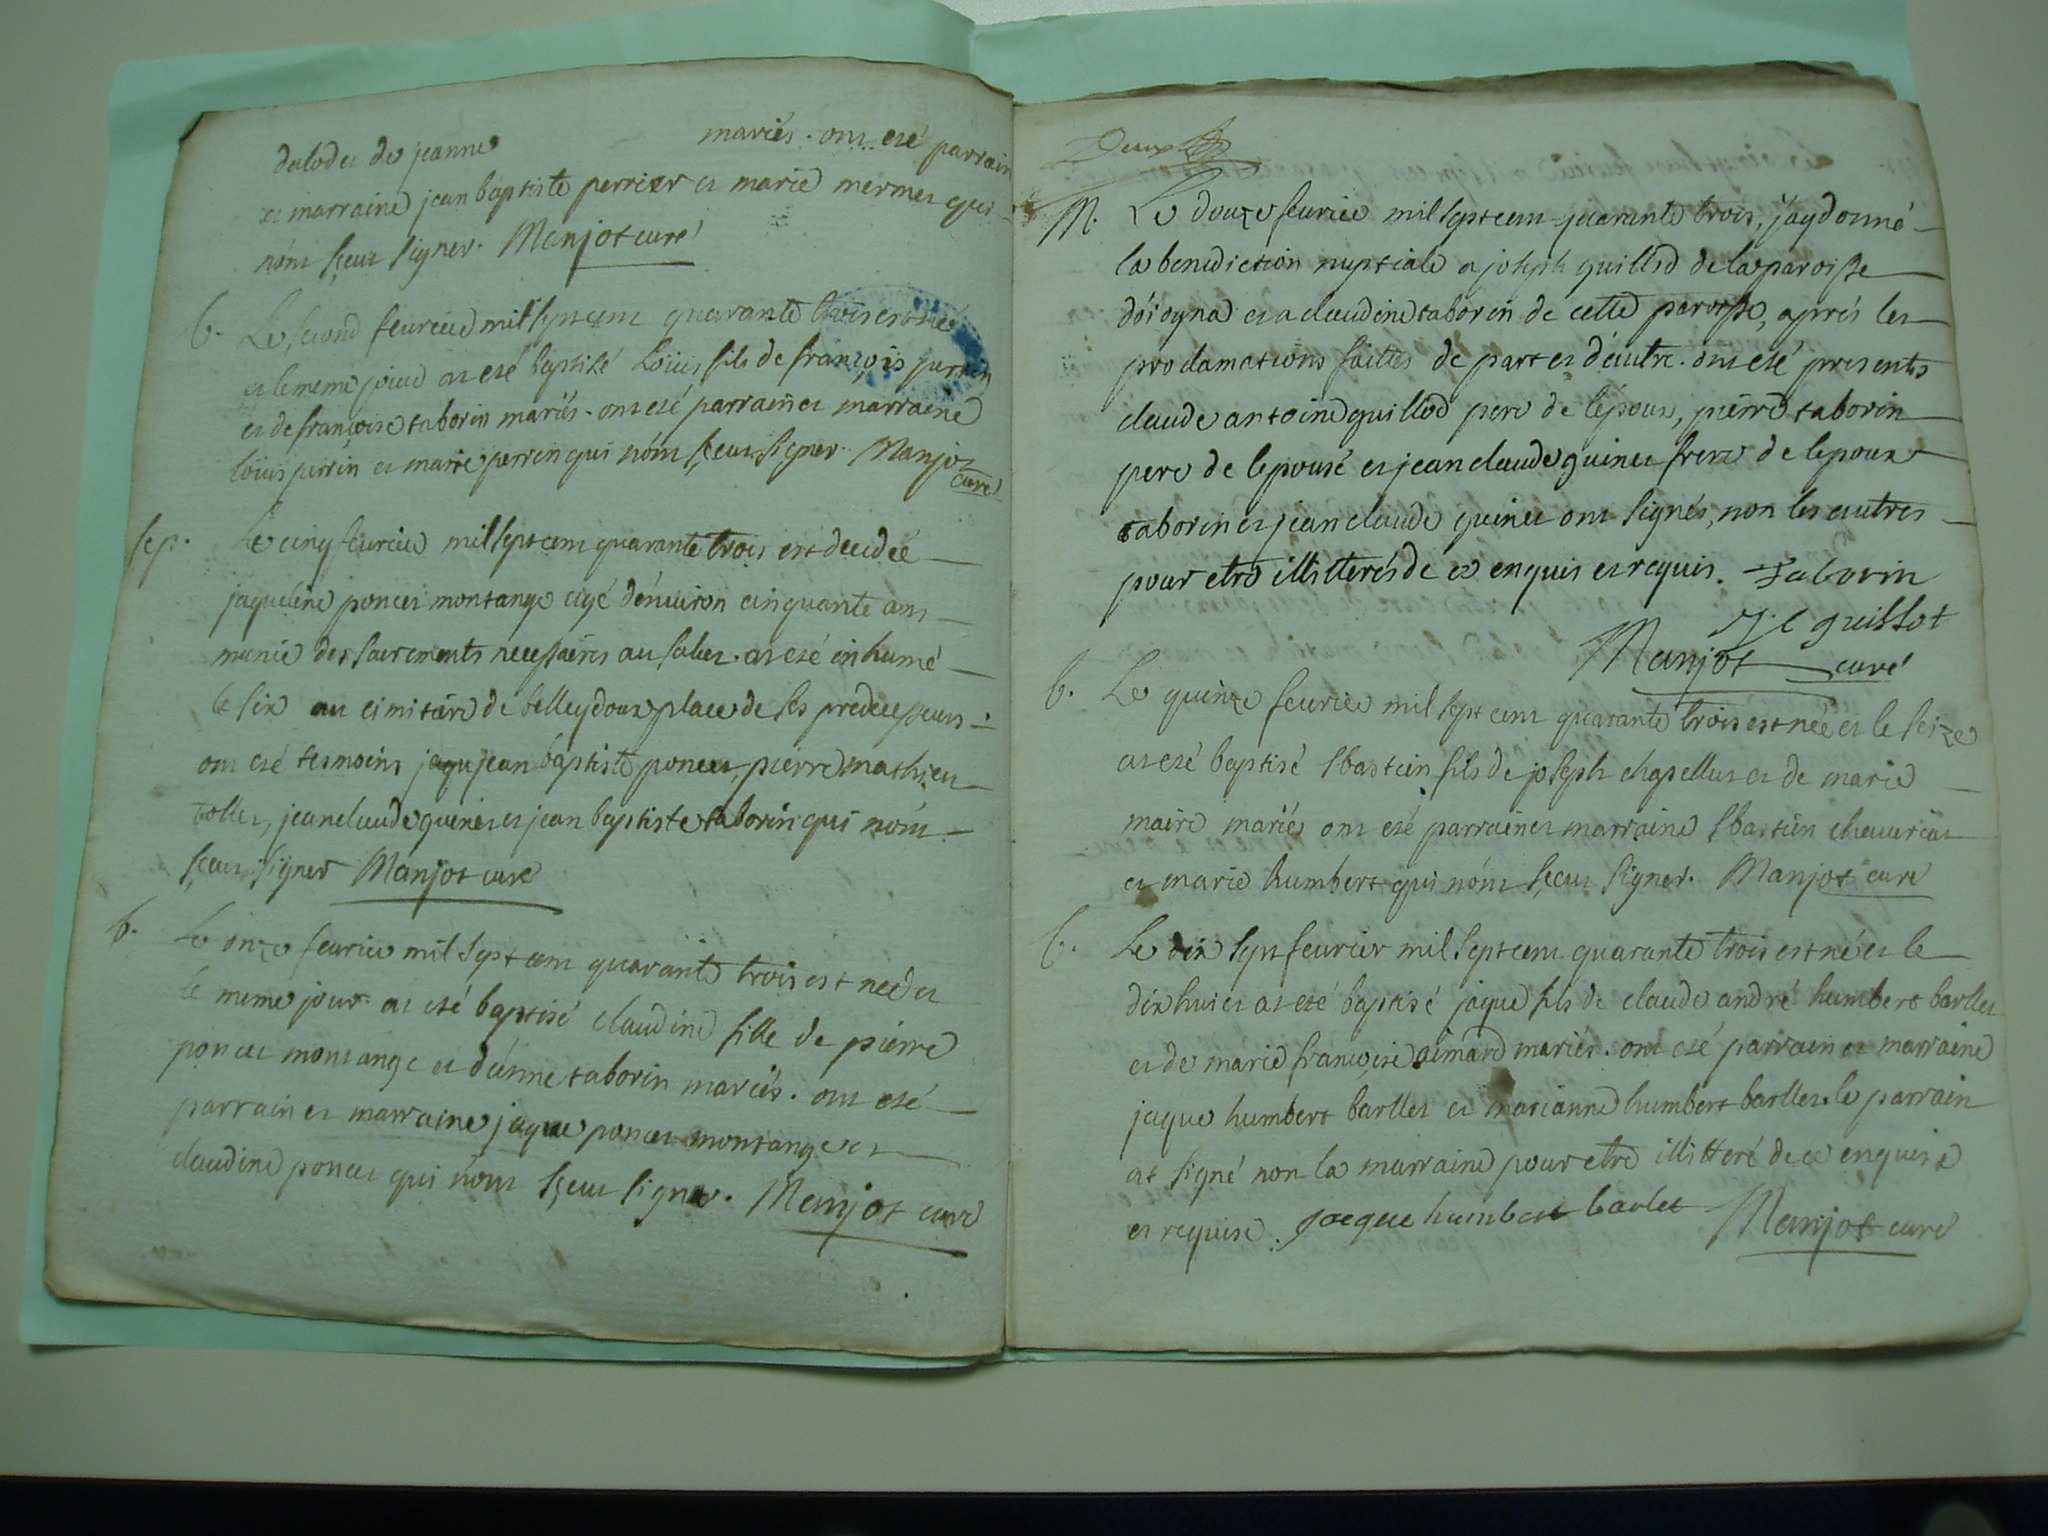 dalod et de jeanne mariés. ont eté parrain
et marraine jean baptiste perrier et marie mermet qui
n'ont sçeut signer. Manjot curé
b. Le second feurier mil sept cent quarante trois est né
et le meme jour at eté baptisé Loüis fils de françois perrin
et de françoise taborin mariés. ont eté parrain et marraine
loüis perrin et marie perrin qui n'ont sçeut signer. Manjot
curé
sep. Le cinq feurier mil sept cent quarante trois est decedeé
jaqueline poncet montange agé d'enuiron cinquante ans
munie des sacrements necessaires au salut. at eté inhumé
le six au cimitiere de belleydoux place de ses predecesseurs
ont eté tesmoins jean baptiste poncet, pierre mathieu
tollet, jean claude guinet et jean baptiste taborin qui n'ont
sçeut signer Manjot curé
b. Le onze feurier mil sept cent quarante trois est neé et
le meme jour at eté baptisé claudine fille de pierre
poncet montange et d'enne taborin mariés. ont eté
parrain et marraine jaque poncet montange et
claudine poncet qui n'ont sçeut signer. Manjot curé
Deux
M. Le douze feurier mil sept cent quarante trois, j'ay donné
la benediction nuptiale a joseph guillod de la paroisse
d'oiogna et a claudine taborin de cette paroisse, aprés les
proclamations faites de part et d'autre. ont eté presents
claude antoine guillod pere de l'epoux, pierre taborin
pere de l'epouse et jean claude guinet frere de l'epoux
taborin et jean claude guinet ont signés, non les autres
pour etre illitterés de ce enquis et requis. Taborin
J. C guillot
Manjot curé
b. Le quinze feurier mil sept cent quarante trois est neé et le seize
at eté baptisé sbastien fils de joseph chapellut et de marie
maire mariés ont eté parrain et marraine sbastien cheuuriat
et marie humbert qui n'ont sçeut signer. Manjot curé
b. Le dix sept feurier mil sept cent quarante trois est né et le
dix huict at eté baptisé jaque fils de claude andré humbert barllet
et de marie françoise aimard mariés. ont eté parrain et marraine
jaque humbert barllet et marianne humbert barllet. le parrain
at signé non la marraine pour etre illitteré de ce enquise
et requise. jacque humbert barlet Manjot curé